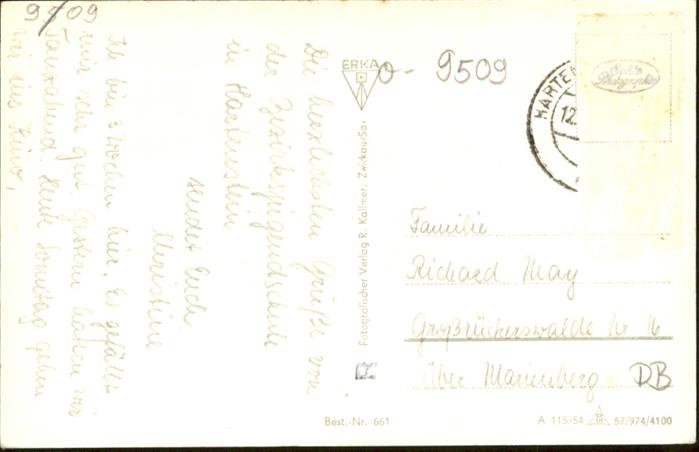 9509
Die herzlichsten Grüße von
der Bezirksjugendschule
in Hartenstein
sendet Euch
Christine
Ich bin 3 Wochen hier. Es gefällt
mir sehr gut. Gestern hatten wir
Tanzabend. Heute Sonntag gehen
wir ins Kino.
ERKA
0- 9509
Fotografischer Verlag R. Kallmer, Zwickau/Sa.
HARTEN
12.
Echte
Photographie
Familie
Richard May
Großrückerswalde Nr. 16
über Marienberg
DB
Best.-Nr. 661
A 115/54 57/974/4100